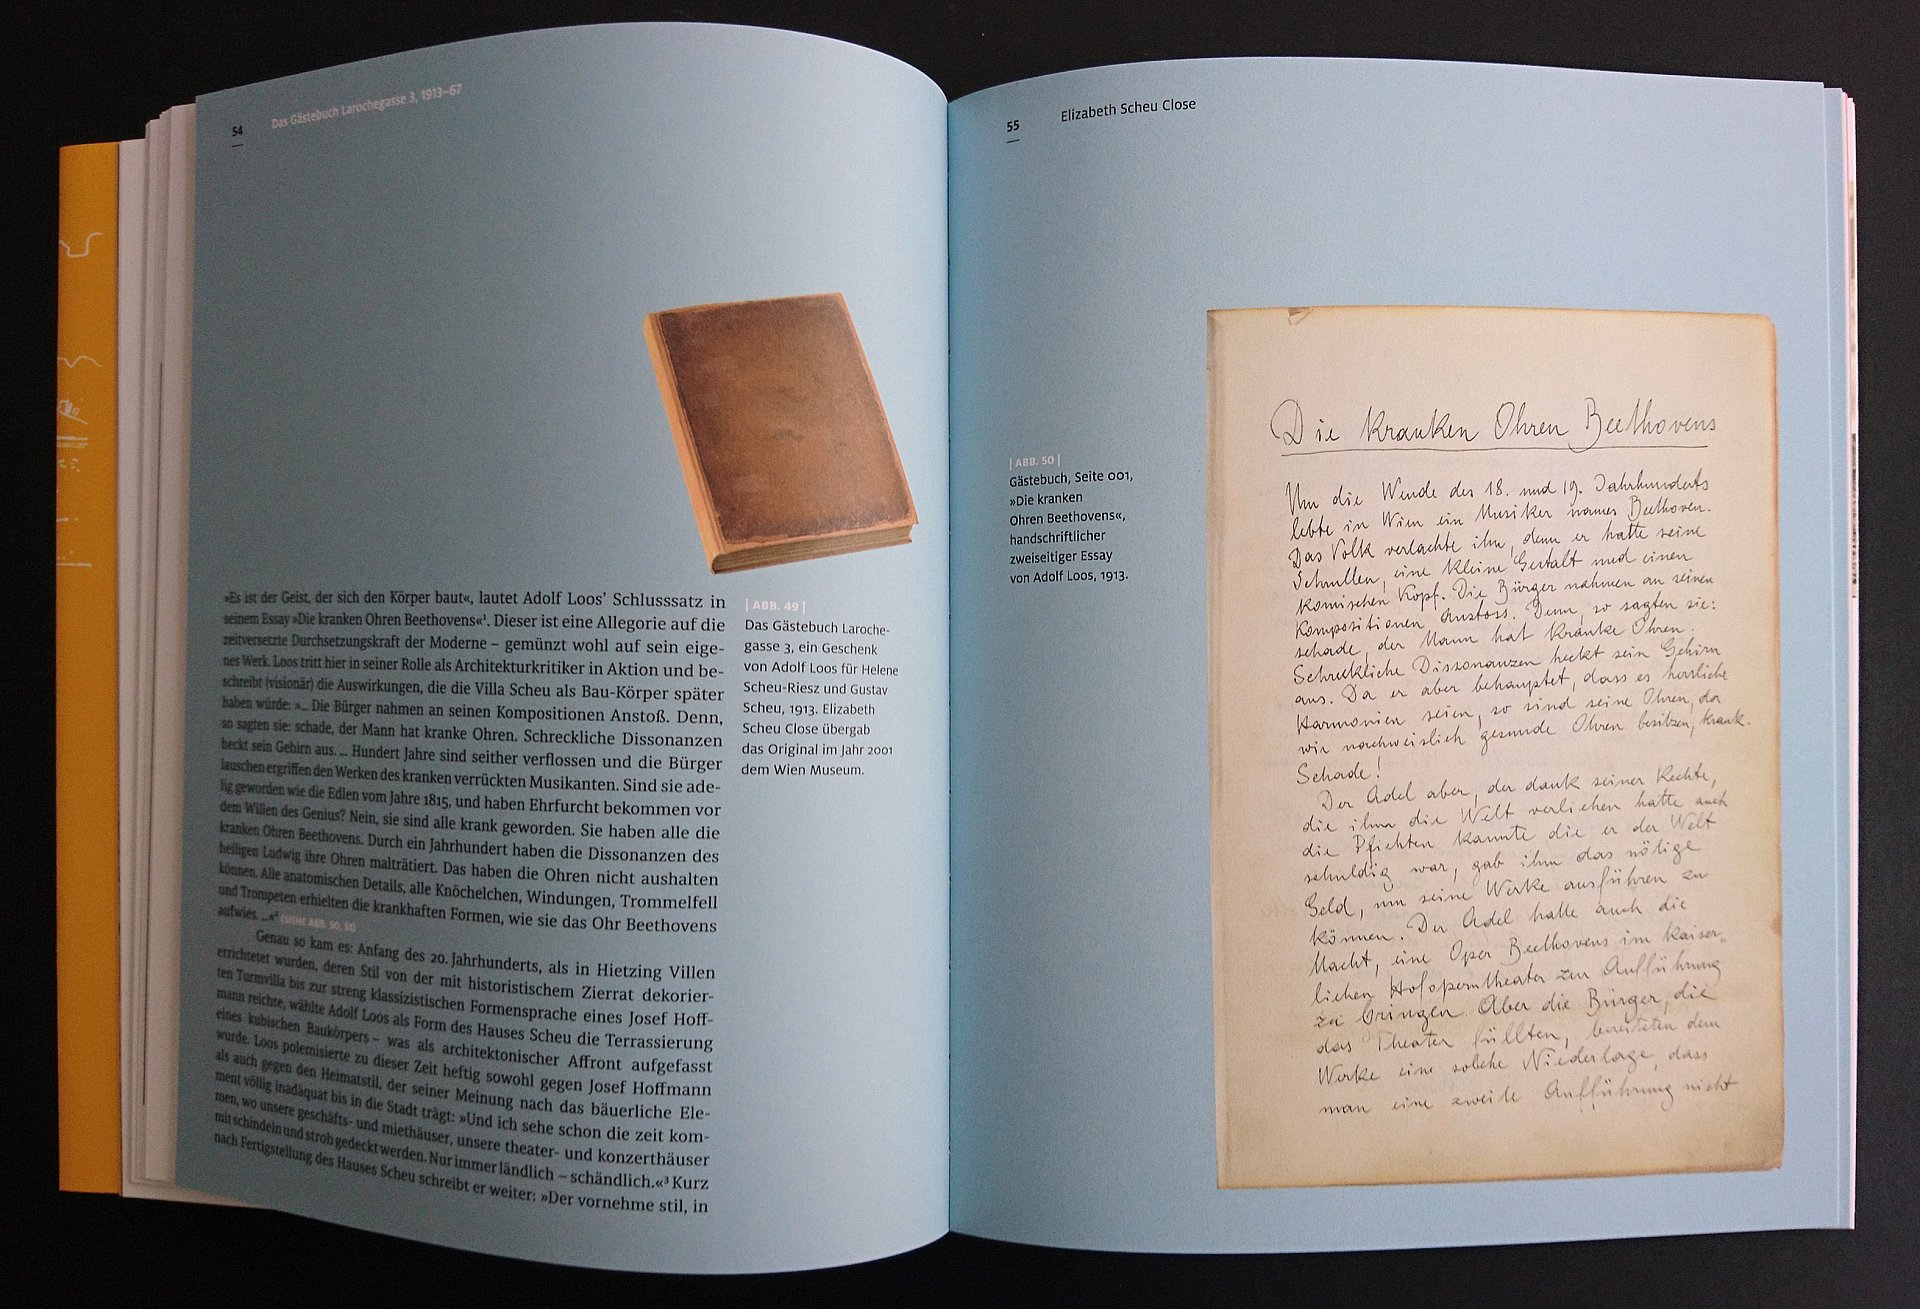 54
Das Gästebuch Larochegasse 3, 1913–67
»Es ist der Geist, der sich den Körper baut«, lautet Adolf Loos’ Schlusssatz in
seinem Essay »Die kranken Ohren Beethovens«¹. Dieser ist eine Allegorie auf die
zeitversetzte Durchsetzungskraft der Moderne – gemünzt wohl auf sein eige-
nes Werk. Loos tritt hier in seiner Rolle als Architekturkritiker in Aktion und be-
schreibt (visionär) die Auswirkungen, die die Villa Scheu als Bau-Körper später
haben würde: »... Die Bürger nahmen an seinen Kompositionen Anstoß. Denn,
so sagten sie: schade, der Mann hat kranke Ohren. Schreckliche Dissonanzen
heckt sein Gehirn aus. ... Hundert Jahre sind seither verflossen und die Bürger
lauschen ergriffen den Werken des kranken verrückten Musikanten. Sind sie ade-
lig geworden wie die Edlen vom Jahre 1815, und haben Ehrfurcht bekommen vor
dem Willen des Genius? Nein, sie sind alle krank geworden. Sie haben alle die
kranken Ohren Beethovens. Durch ein Jahrhundert haben die Dissonanzen des
heiligen Ludwig ihre Ohren malträtiert. Das haben die Ohren nicht aushalten
können. Alle anatomischen Details, alle Knöchelchen, Windungen, Trommelfell
und Trompeten erhielten die krankhaften Formen, wie sie das Ohr Beethovens
aufwies. ...«² (SIEHE ABB. 50, 51)
Genau so kam es: Anfang des 20. Jahrhunderts, als in Hietzing Villen
errichtetet wurden, deren Stil von der mit historistischem Zierrat dekorier-
ten Turmvilla bis zur streng klassizistischen Formensprache eines Josef Hoff-
mann reichte, wählte Adolf Loos als Form des Hauses Scheu die Terrassierung
eines kubischen Baukörpers – was als architektonischer Affront aufgefasst
wurde. Loos polemisierte zu dieser Zeit heftig sowohl gegen Josef Hoffmann
als auch gegen den Heimatstil, der seiner Meinung nach das bäuerliche Ele-
ment völlig inadäquat bis in die Stadt trägt: »Und ich sehe schon die zeit kom-
men, wo unsere geschäfts- und miethäuser, unsere theater- und konzerthäuser
mit schindeln und stroh gedeckt werden. Nur immer ländlich – schändlich.«³ Kurz
nach Fertigstellung des Hauses Scheu schreibt er weiter: »Der vornehme stil, in
| ABB. 49 |
Das Gästebuch Laroche-
gasse 3, ein Geschenk
von Adolf Loos für Helene
Scheu-Riesz und Gustav
Scheu, 1913. Elizabeth
Scheu Close übergab
das Original im Jahr 2001
dem Wien Museum.
55
Elizabeth Scheu Close
| ABB. 50 |
Gästebuch, Seite 001,
»Die kranken
Ohren Beethovens«,
handschriftlicher
zweiseitiger Essay
von Adolf Loos, 1913.
Die kranken Ohren Beethovens
Um die Wende des 18. und 19. Jahrhunderts
lebte in Wien ein Musiker names Beethoven.
Das Volk verlachte ihn, denn er hatte seine
Schrullen, eine kleine Gestalt und einen
komischen Kopf. Die Bürger nahmen an seinen
Kompositionen Anstoss. Denn, so sagten sie:
schade, der Mann hat kranke Ohren.
Schreckliche Dissonanzen heckt sein Gehirn
aus. Da er aber behauptet, dass es herrliche
Harmonien seien, so sind seine Ohren, da
wir nachweislich gesunde Ohren besitzen, krank
Schade!
Der Adel aber, der dank seiner Rechte,
die ihm die Welt verliehen hatte auch
die Pfichten kannte die er der Welt
schuldig war, gab ihm das nötige
Geld, um seine Werke aufführen zu
können. Der Adel hatte auch die
Macht, eine Oper Beethovens im Kaiser„
lichen Hofoperntheater zur Aufführung
zu bringen. Aber die Bürger, die
das Theater füllten, bereiteten dem
Werke eine solche Niederlage, dass
man eine zweite Aufführung nicht